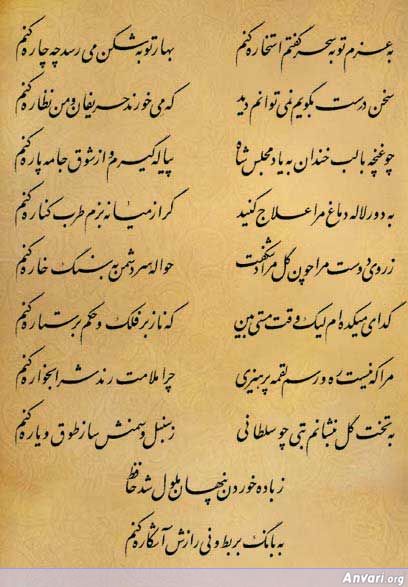 به عزم توبه سحر گفتم استخاره کنم بهار توبه شکن می رسد چه چاره کنم
سخن درست بگویم نمی توانم دید که می خورند حریفان و من نظاره کنم
چو غنچه با لب خندان به یاد مجلس شاه پیاله گیرم و از شوق جامه پاره کنم
به دور لاله دماغ مرا علاج کنید گر از میانه بزم طرب کناره کنم
ز روی دوست مرا چون گل مراد شکفت حواله سر دشمن به سنگ خاره کنم
گدای میکده ام لیک وقت مستی بین که ناز بر فلک و حکم بر ستاره کنم
مرا که نیست ره و رسم لقمه پرهیزی چرا ملامت رند شرابخواره کنم
به تخت گل بنشانم بتی چو سلطانی ز سنبل و سمنش ساز طوق و یاره کنم
ز باده خوردن پنهان ملول شد حافظ
به بانگ بربط و نی رازش آشکاره کنم
Anvari.org